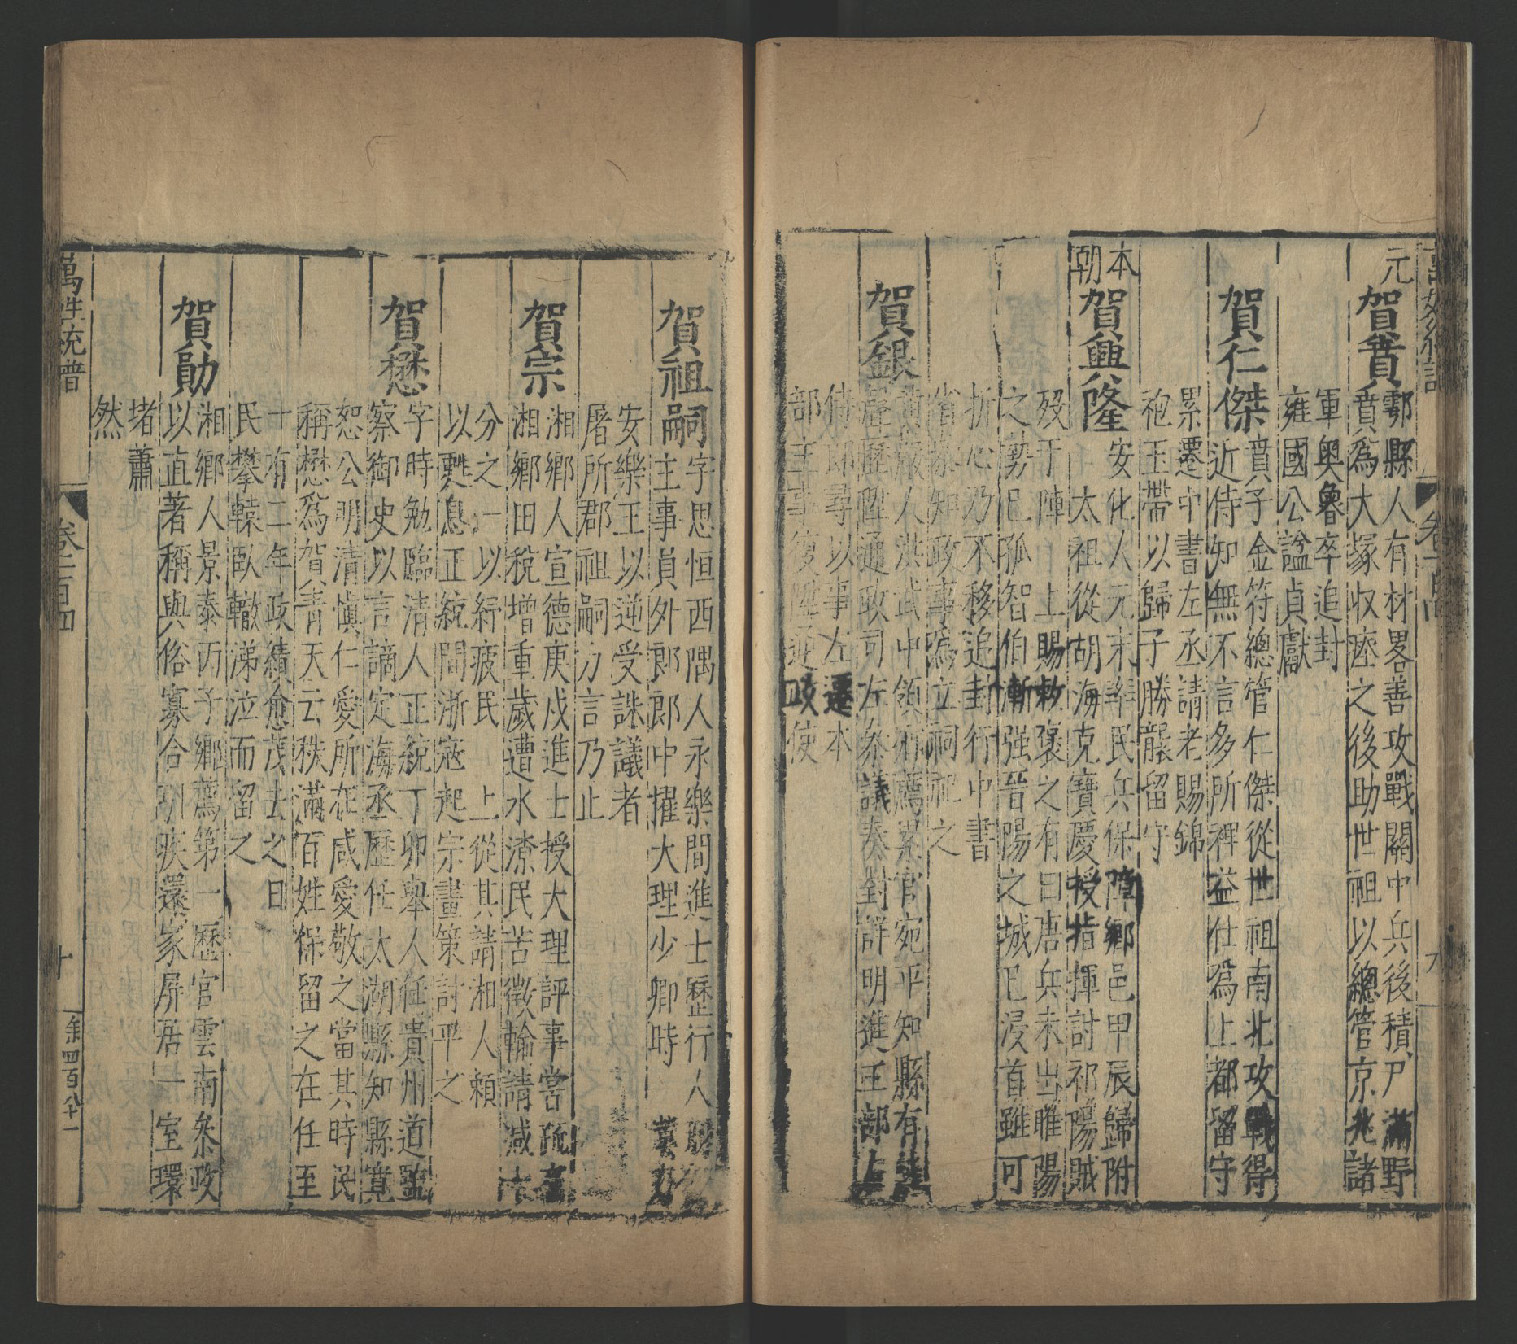 元
賀賁鄠縣人有材畧善攻戰關中兵後積尸滿野
賁為大塚收瘞之後助世祖以總管京兆諸
軍奧魯卒追封
雍國公諡貞獻
賀仁傑賁子金符總管仁傑從世祖南北攻戰得
近侍知無不言多所裨益仕為上都留守
累遷中書左丞請老賜錦
袍玉帶以歸子勝襲留守
本朝
賀興隆安化人元末率民兵保障鄉邑甲辰歸附
太祖從胡海克寶慶授指揮討祁陽賊
歿于陣 上賜敕褒之有曰唐兵未出睢陽
之勢已孤智伯漸强晉陽之城已浸首雖可
折心乃不移追封行中書
省叅知政事為立祠祀之
賀銀人洪武中領鄉薦累官宛平知縣有
陞通政司左叅議奏對詳明進工部
侍郎尋以事左遷本
部主事復陞
賀祖嗣字思恒西隅人永樂間進士歷行人
主事員外郎郎中擢大理少卿時
安樂王以逆受誅議者
屠所郡祖嗣力言乃止
賀宗湘鄉人宣德庚戌進士授大理評事嘗疏言
湘鄉田稅增重歲遭水潦民苦徵輸請减十
分之一以紓疲民 上從其請湘人賴
以甦息正統間浙寇起宗畫策討平之
賀懋字時勉臨清人正統丁卯舉人任貴州道監
察御史以言謫定海丞歷仕太湖縣知縣寬
恕公明清愼仁愛所在咸愛敬之當其時民
稱懋為賀青天云秩滿百姓保留之在任至
十有二年政績愈茂去之日
民攀轅臥轍涕泣而留之
賀勛湘鄉人景泰丙子鄉薦第一歷官雲南叅政
以直著稱與俗寡合引疾還家屏居一室環
堵蕭
然
萬姓統譜
卷一百四
十